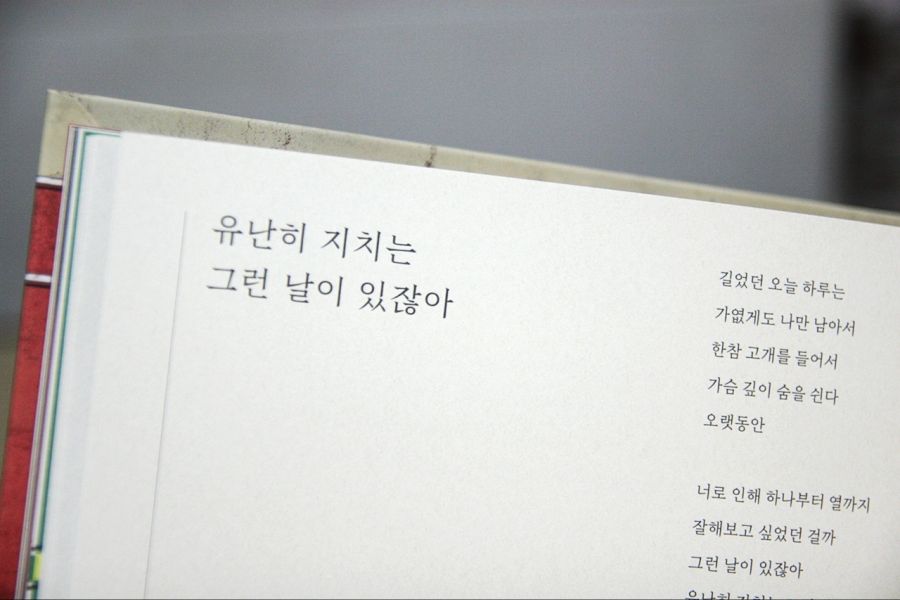 유난히 지치는
그런 날이 있잖아
길었던 오늘 하루는
가엾게도 나만 남아서
한참 고개를 들어서
가슴 깊이 숨을 쉰다
오랫동안
너로 인해 하나부터 열까지
잘해보고 싶었던 걸까
그런 날이 있잖아
유난히